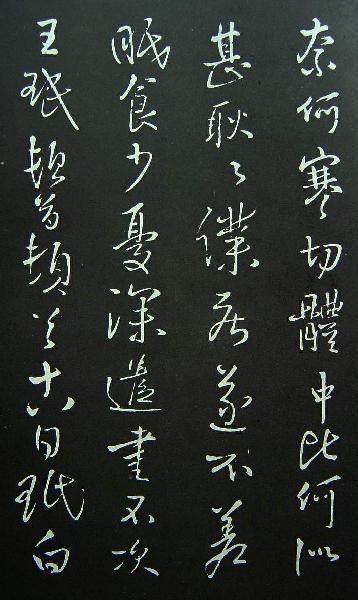 奈何寒切體中比何似
甚耿〻僕疾遂不差
眠食少憂深遣書不次
王珉頓首頓首十八日珉白